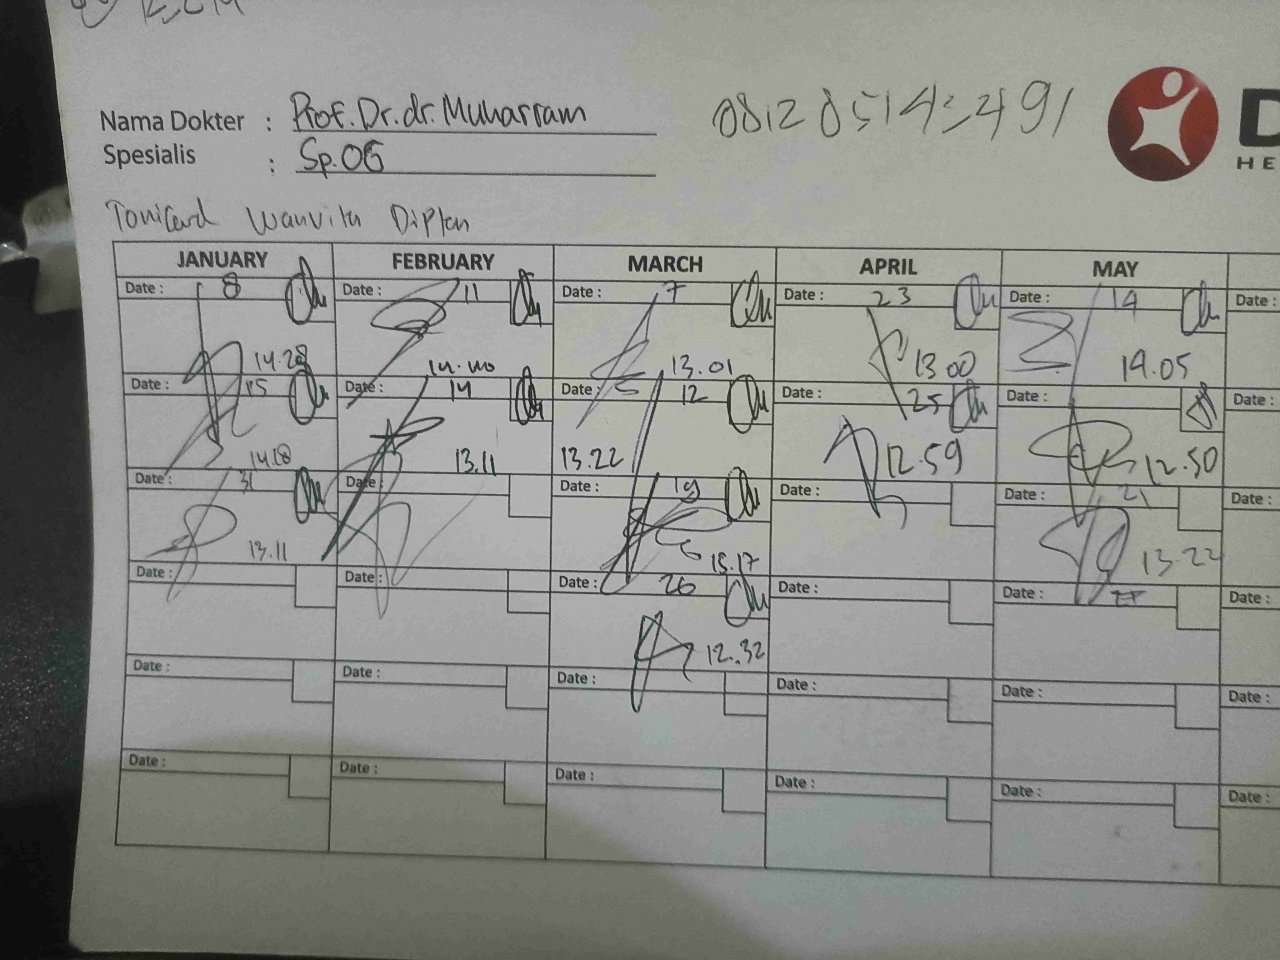 Nama Dokter : Prof. Dr. dr. Muharram
Spesialis : Sp.OG
D
HE
JANUARY FEBRUARY MARCH APRIL MAY
Date : 8 Date : 11 Date : 7 Date : 23 Date : 14 Date :
14.28 14.40 13.01 13.00 14.05
Date : 15 Date : 14 Date : 12 Date : 25 Date : Date :
14.18 13.11 13.22 12.59 12.50
Date : 31 Date : Date : 19 Date : Date : 21 Date :
13.11 15.17 13.22
Date : Date : Date : 26 Date : Date : Date :
12.32
Date : Date : Date : Date : Date : Date :
Date : Date : Date : Date : Date : Date :